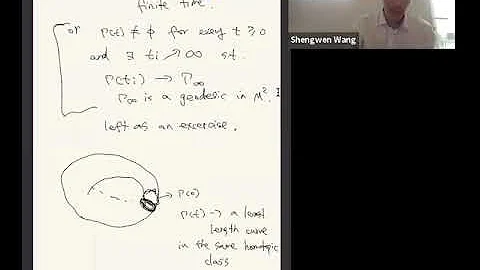 finite time.
or Γ(t) ≠ ϕ for every t ≥ 0
and ∃ ti ↗ ∞ st.
Γ(ti) → Γ∞
Γ∞ is a geodesic in M².
left as an excercise.
Γ(0)
Γ(t) → a least
length curve
in the same homotopic
class
Shengwen Wang